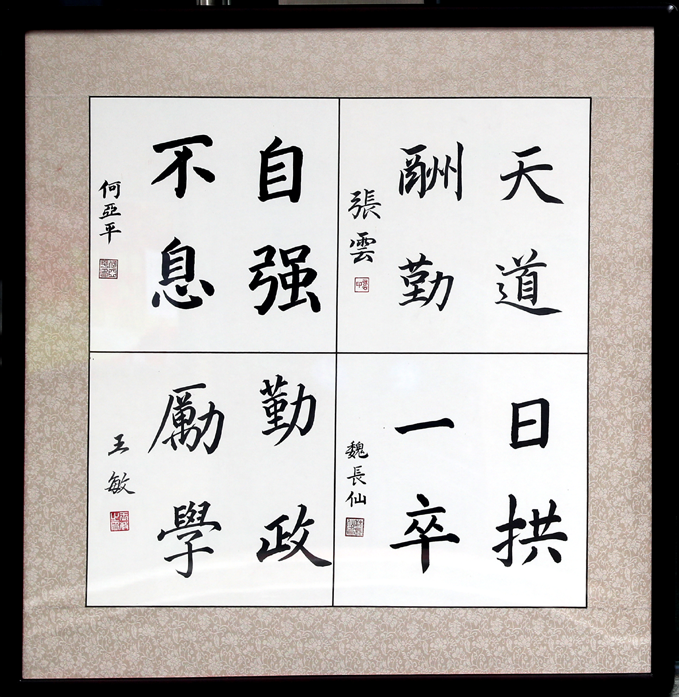 天道
酬勤
張雲
自强
不息
何亞平
日拱
一卒
魏長仙
勤政
勵學
王敏